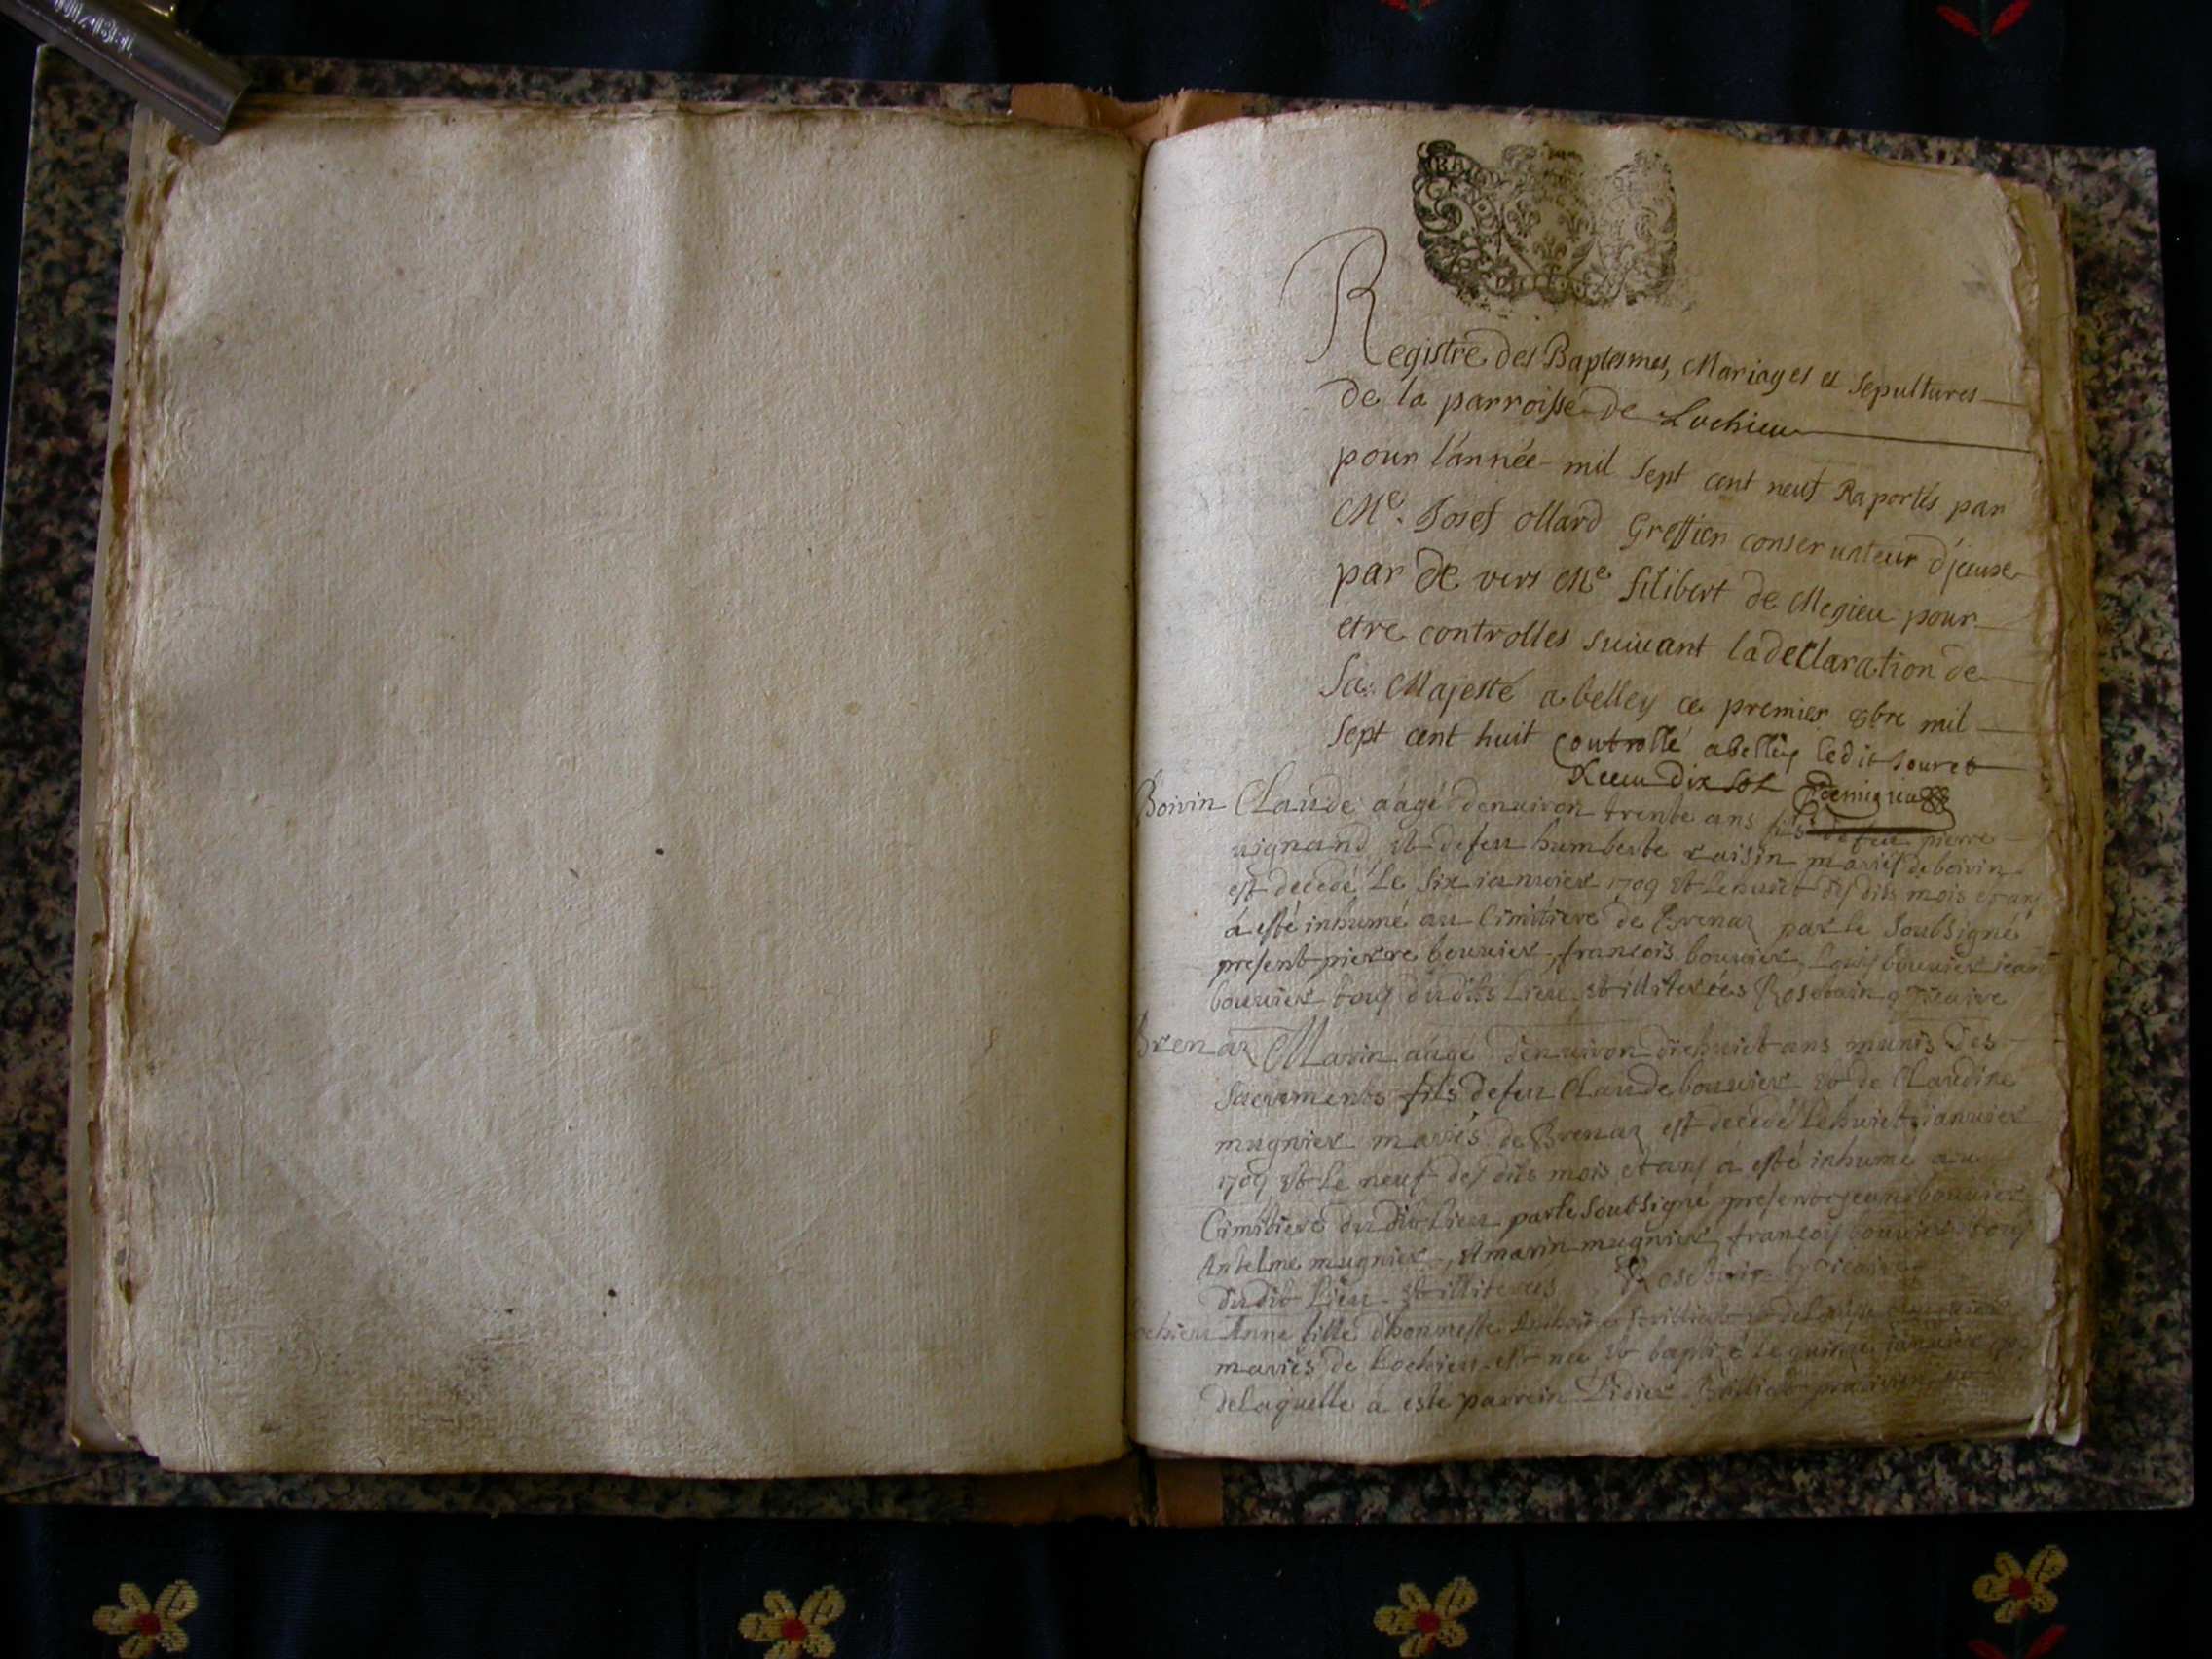 Registre des Baptesmes, Mariages et Sepultures
de la parroisse de Lochieu
pour l'année mil Sept cent neuf Raportés par
Me. Josef ollard Greffier conseruateur d'jceuse
par de vers Me filibert de Megieu pour
etre controlles suiuant la declaration de
Sa Majesté a belley ce premier 8bre mil
Sept cent huit Controllé a belley ledit Jour et
Receu dix Sols
Boivin Claude aagé denuiron trente ans fils de feu pierre
uignand et de feu humberte raisin mariés de boivin
est decedé Le six ianuier 1709 et Le huict des dits mois et an
a esté inhumé au Cimitiere de Brenaz par le Soubsigné
present pierre bouuier, francois bouuier, Louis bouuier jean
bouuier tous du dits Lieu et illiterées
Brenaz Marin aagé denuiron diehuict ans munis des
Sacrements fils de feu Claude bouuier et de Claudine
mugnier mariés de Brenaz est decedé Le huict ianuier
1709 et Le neuf des dits mois et an a esté inhumé au
Cimitiere du dit Lieu par le Soubsigné present jean bouuier
Antelme mugnier, Amarin mugnier, françois bouuier tous
du dit Lieu et illiterées
Lochieu Anne fille d'honneste
mariés de Lochieu est née et baptisé Le quinze januier
de Laquelle a esté parrein